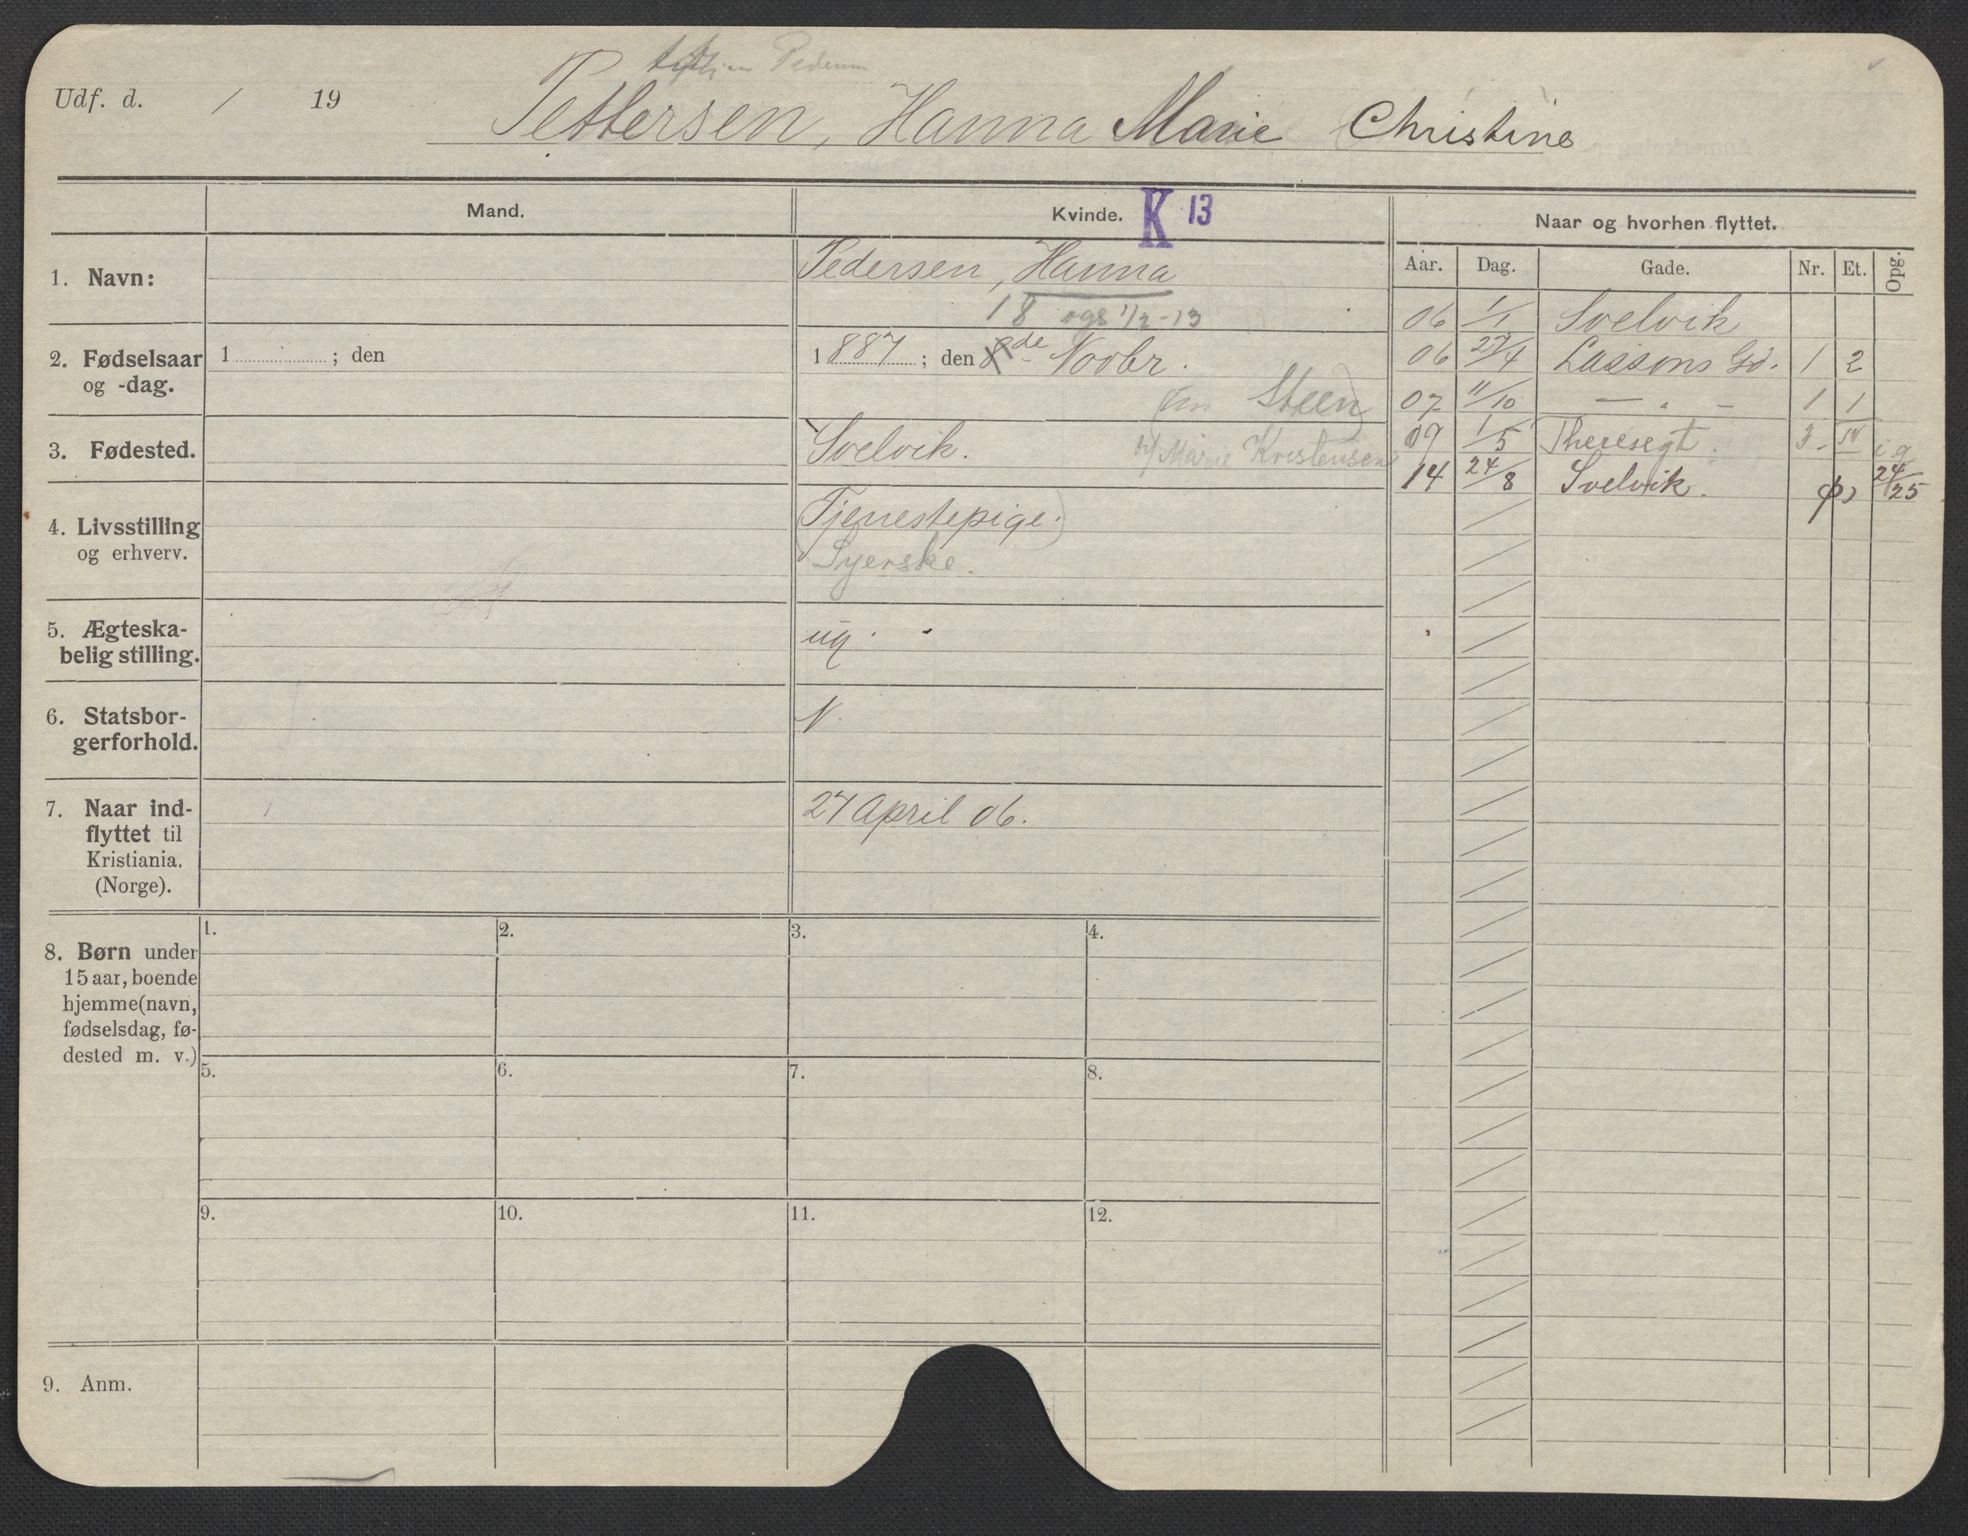 Pedersen
Udf. d. / 19
Pettersen, Hanna Marie Christine
Mand.
Kvinde. K 13
Naar og hvorhen flyttet.
Aar. Dag. Gade. Nr. Et. Opg.
1. Navn:
Pedersen, Hanna
18 ogs 1/2-13
2. Fødselsaar og -dag.
1 ; den
1887 ; den 8de Novbr.
Steen)
3. Fødested.
Svelvik.
Marie Kristensen
4. Livsstilling og erhverv.
(Tjenestepige.)
Syerske.
5. Ægteska-
belig stilling.
ug.
6. Statsbor-
gerforhold.
N.
7. Naar ind-
flyttet til
Kristiania.
(Norge).
27 April 06.
06 1/1 Svelvik
06 27/4 Lassons Gd. 1 2
07 11/10 — " — 1 1
09 1/5 Theresegt. 3 - IV i g
14 24/8 Svelvik. 24/25
8. Børn under
15 aar, boende
hjemme (navn,
fødselsdag, fø-
dested m. v.)
1. 2. 3. 4.
5. 6. 7. 8.
9. 10. 11. 12.
9. Anm.